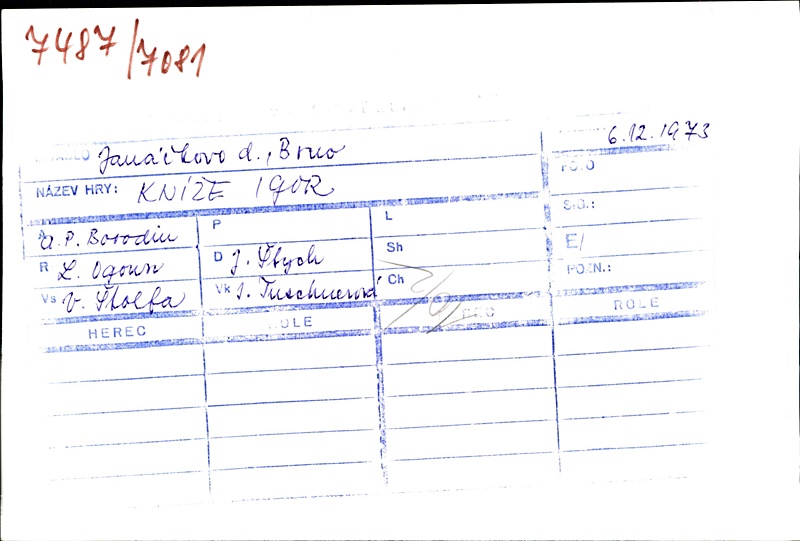 7487/7081
DIVADLO Janáčkovo d., Brno 6.12.1973
NÁZEV HRY: KNÍŽE IGOR FOTO
A A. P. Borodin P L SIG.:
R L. Ogoun D J. Štych Sh E/
Vs V. Štolfa Vk I. Tuschnerová Ch POZN.:
HEREC ROLE HEREC ROLE